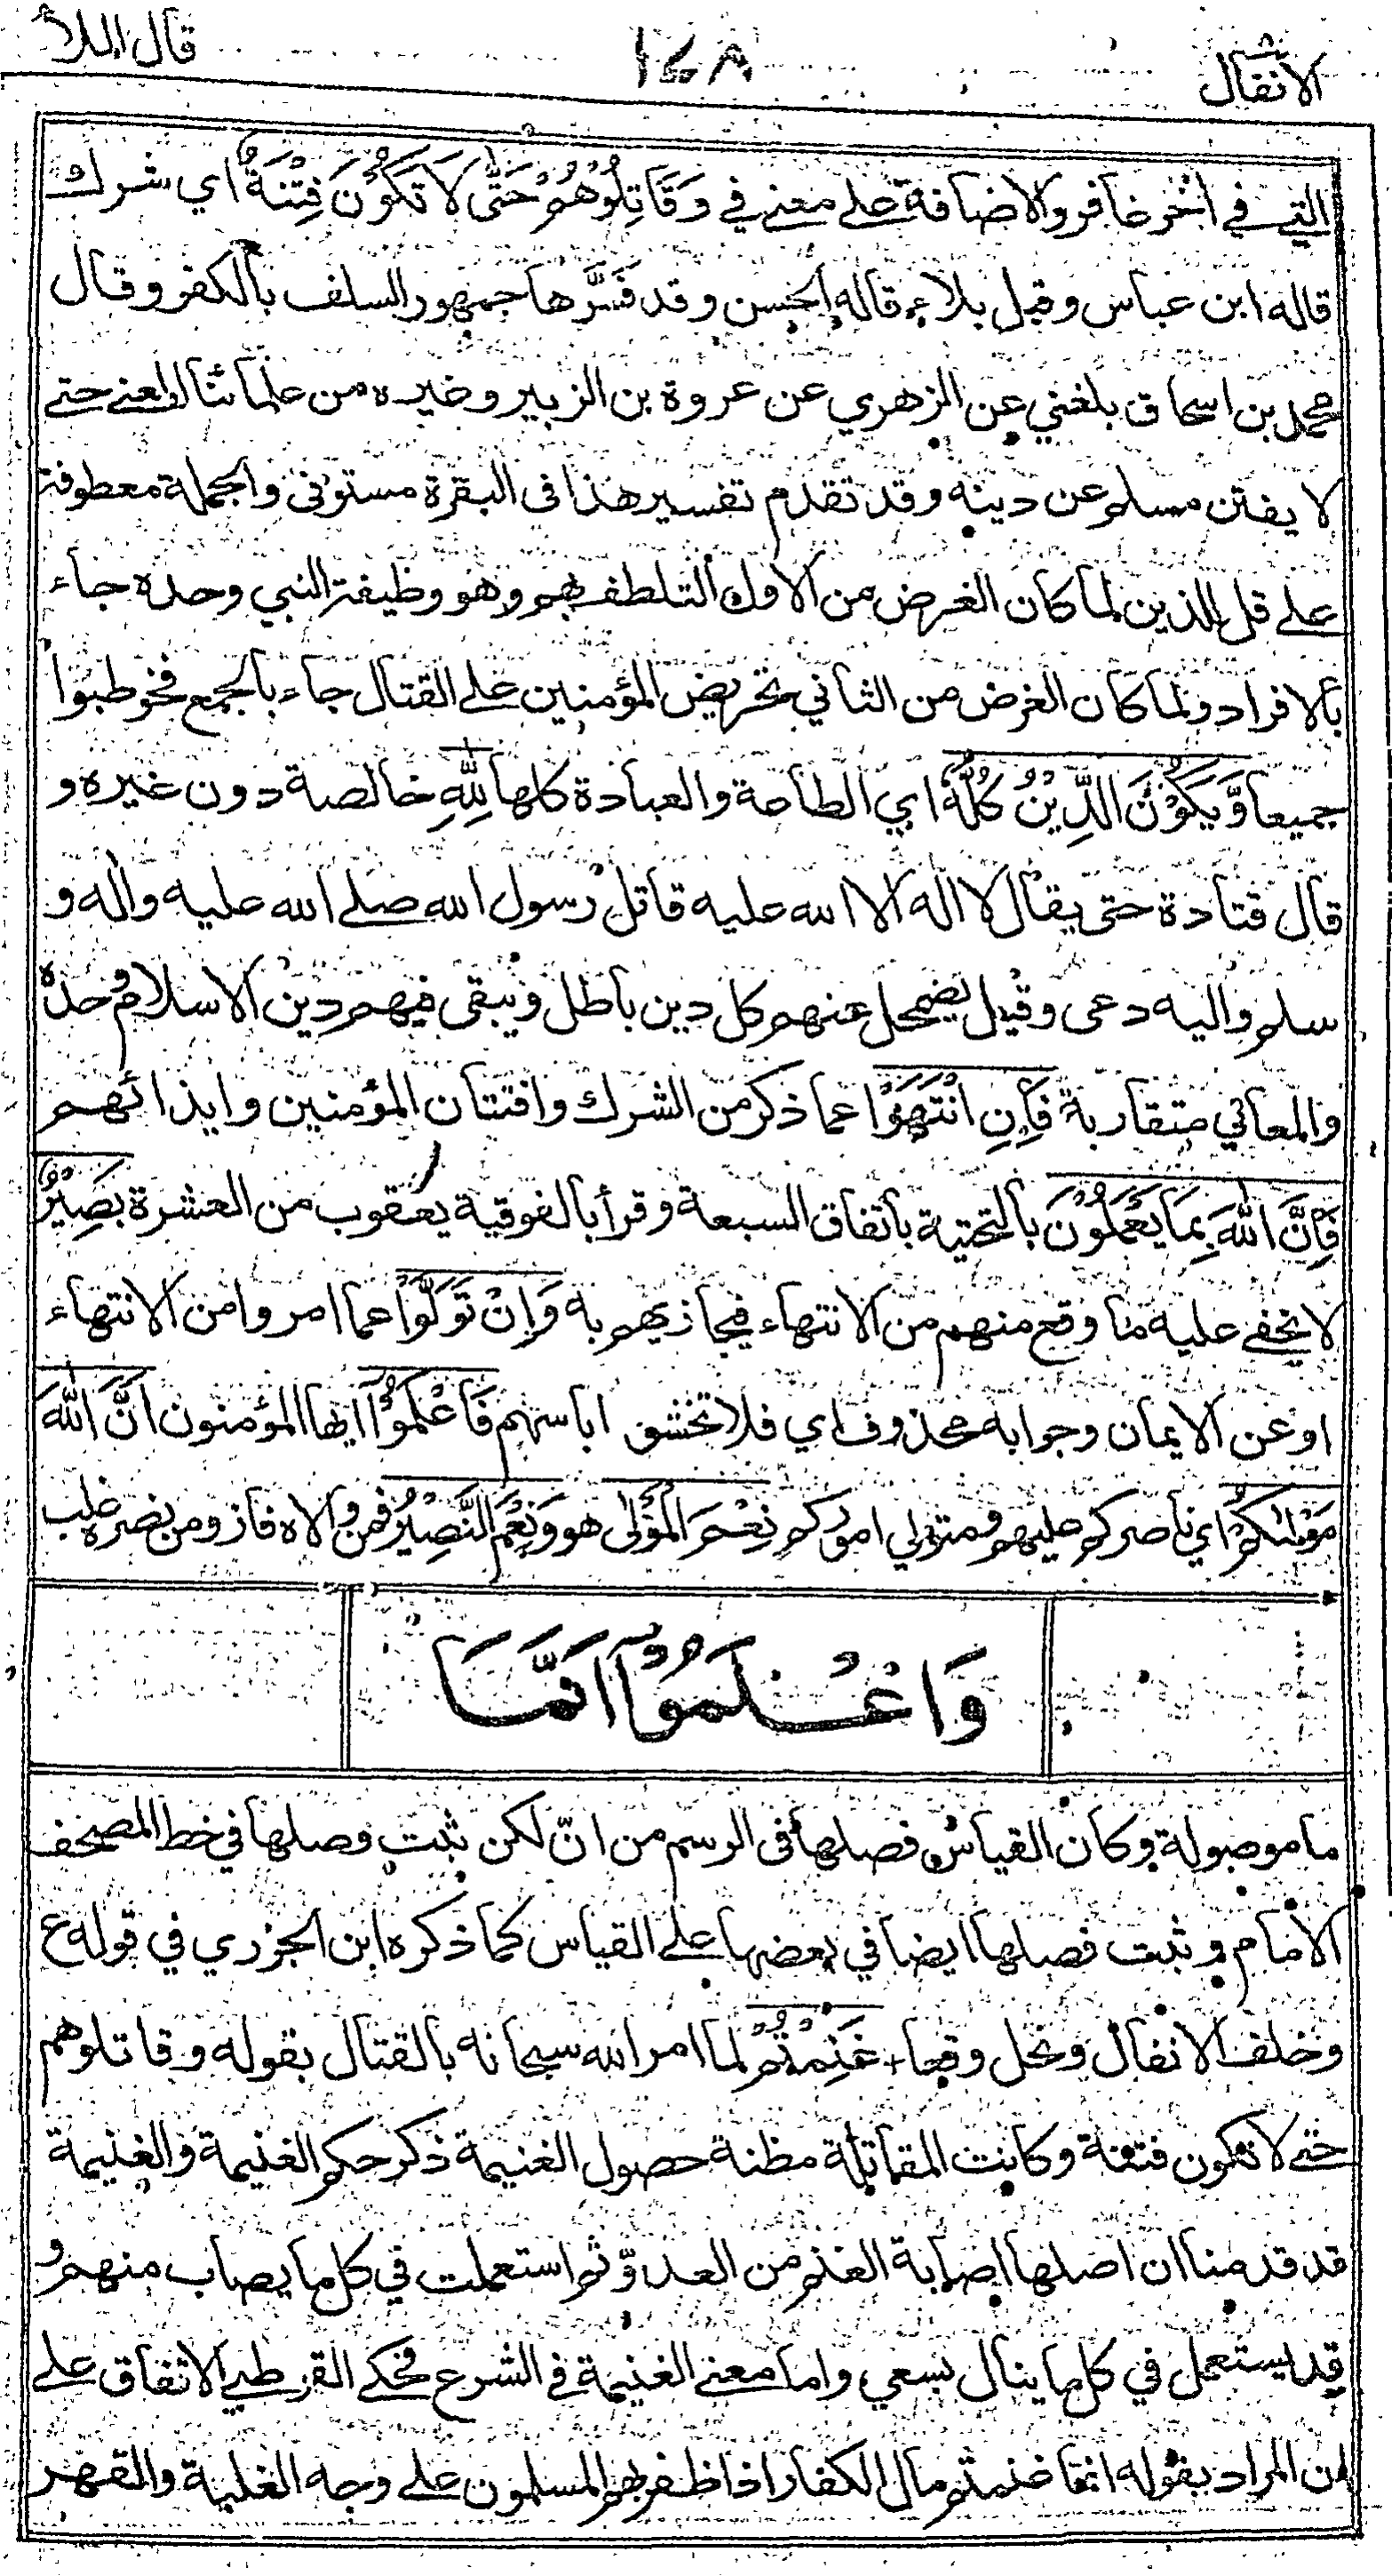 الانفال ٨
١٤٨
قال الملأ
التي في اخر غافر والاضافة على معنى في وَقَاتِلُوْهُمْ حَتّٰى لَا تَكُوْنَ فِتْنَةٌ اي شرك
قاله ابن عباس وقيل بلاء قاله الحسن وقد فسَّرها جمهور السلف بالكفر وقال
محمد بن اسحاق بلغني عن الزهري عن عروة بن الزبير وغيره من علمائنا المعنى حتى
لا يفتن مسلم عن دينه وقد تقدم تفسير هذا في البقرة مستوفى والجملة معطوفة
على قل للذين لما كان الغرض من الاول التلطف بهم وهو وظيفة النبي وحده جاء
بالافراد ولما كان الغرض من الثاني تحريض المؤمنين على القتال جاء بالجمع فخوطبوا
جميعا وَّيَكُوْنَ الدِّيْنُ كُلُّهٗ اي الطاعة والعبادة كلها لِلّٰهِ خالصة دون غيره و
قال قتادة حتى يقال لا اله الا الله عليه قاتل رسول الله صلى الله عليه واله و
سلم واليه دعى وقيل يضمحل عنهم كل دين باطل ويبقى فيهم دين الاسلام وحده
والمعاني متقاربة فَاِنِ انْتَهَوْا عما ذكر من الشرك وافتتان المؤمنين وايذائهم
فَاِنَّ اللّٰهَ بِمَا يَعْمَلُوْنَ بالتحتية باتفاق السبعة وقرأ بالفوقية يعقوب من العشرة بَصِيْرٌ
لا يخفى عليه ما وقع منهم من الانتهاء فيجازيهم به وَاِنْ تَوَلَّوْا عما امروا من الانتهاء
او عن الايمان وجوابه محذوف اي فلا تخشوا باسهم فَاعْلَمُوْٓا ايها المؤمنون اَنَّ اللّٰهَ
مَوْلٰىكُمْ اي ناصركم عليهم ومتولي اموركم نِعْمَ الْمَوْلٰى هو وَنِعْمَ النَّصِيْرُ فمن والاه فاز ومن نصره غلب
وَاعْلَمُوْٓا اَنَّمَا
ما موصولة وكان القياس فصلها في الرسم من انّ لكن ثبت وصلها في خط المصحف
الامام وثبت فصلها ايضا في بعضها على القياس كما ذكره ابن الجزري في قوله ع
وخلف الانفال ونحل وقعا + غَنِمْتُمْ لما امر الله سبحانه بالقتال بقوله وقاتلوهم
حتى لا تكون فتنة وكانت المقاتلة مظنة حصول الغنيمة ذكر حكم الغنيمة والغنيمة
قد قدمنا ان اصلها اصابة الغنم من العدوّ ثم استعملت في كل ما يصاب منهم و
قد يستعمل في كل ما ينال بسعي واما معنى الغنيمة في الشرع فحكى القرطبي الاتفاق على
ان المراد بقوله انما غنمتم مال الكفار اذا ظفر بهم المسلمون على وجه الغلبة والقهر